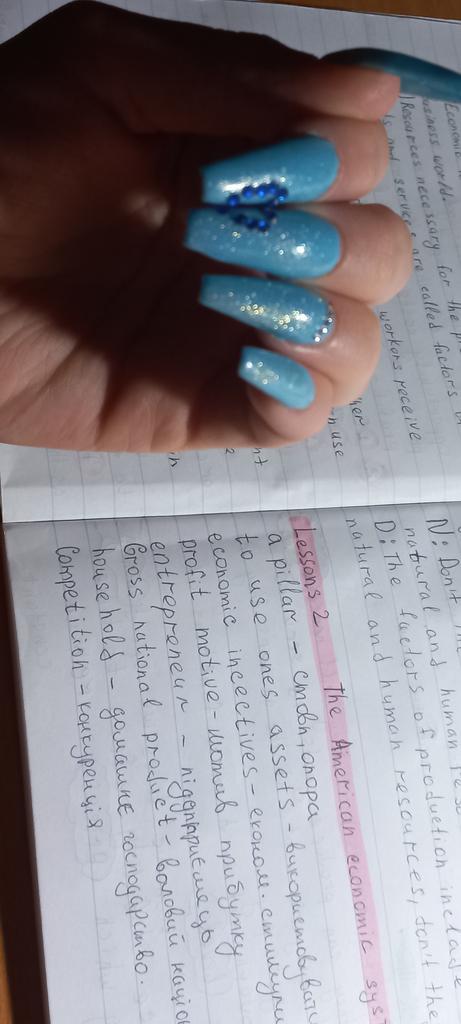 Economic
world.
) Resources necessary for the
and services are called factors
workers receive
use
N: Don't
natural and human
D: The factors of production include
natural and human resources, don't the
Lessons 2 The American economic
a pillar – стовп, опора
to use ones assets – використовувати
economic incectives – економ. стимули
profit motive – мотив прибутку
entrepreneur – підприємець
Gross national product – валовий націо
household – домашнє господарство.
Competition – конкуренція